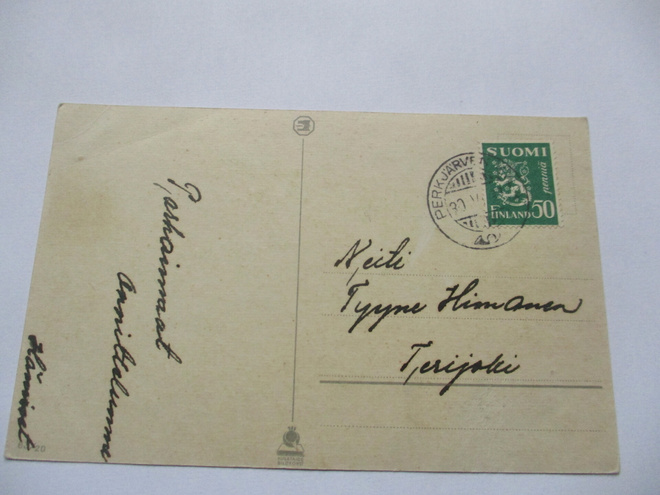 Parhaimmat
onnittelumme
Hämmet
PERKJÄRVI
30
SUOMI
penniä
FINLAND 50
Neiti
Tyyne Himanen
Terijoki